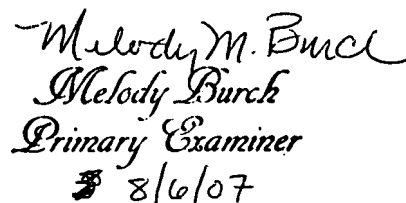 Melody M. Burch
Melody Burch
Primary Examiner
8/6/07